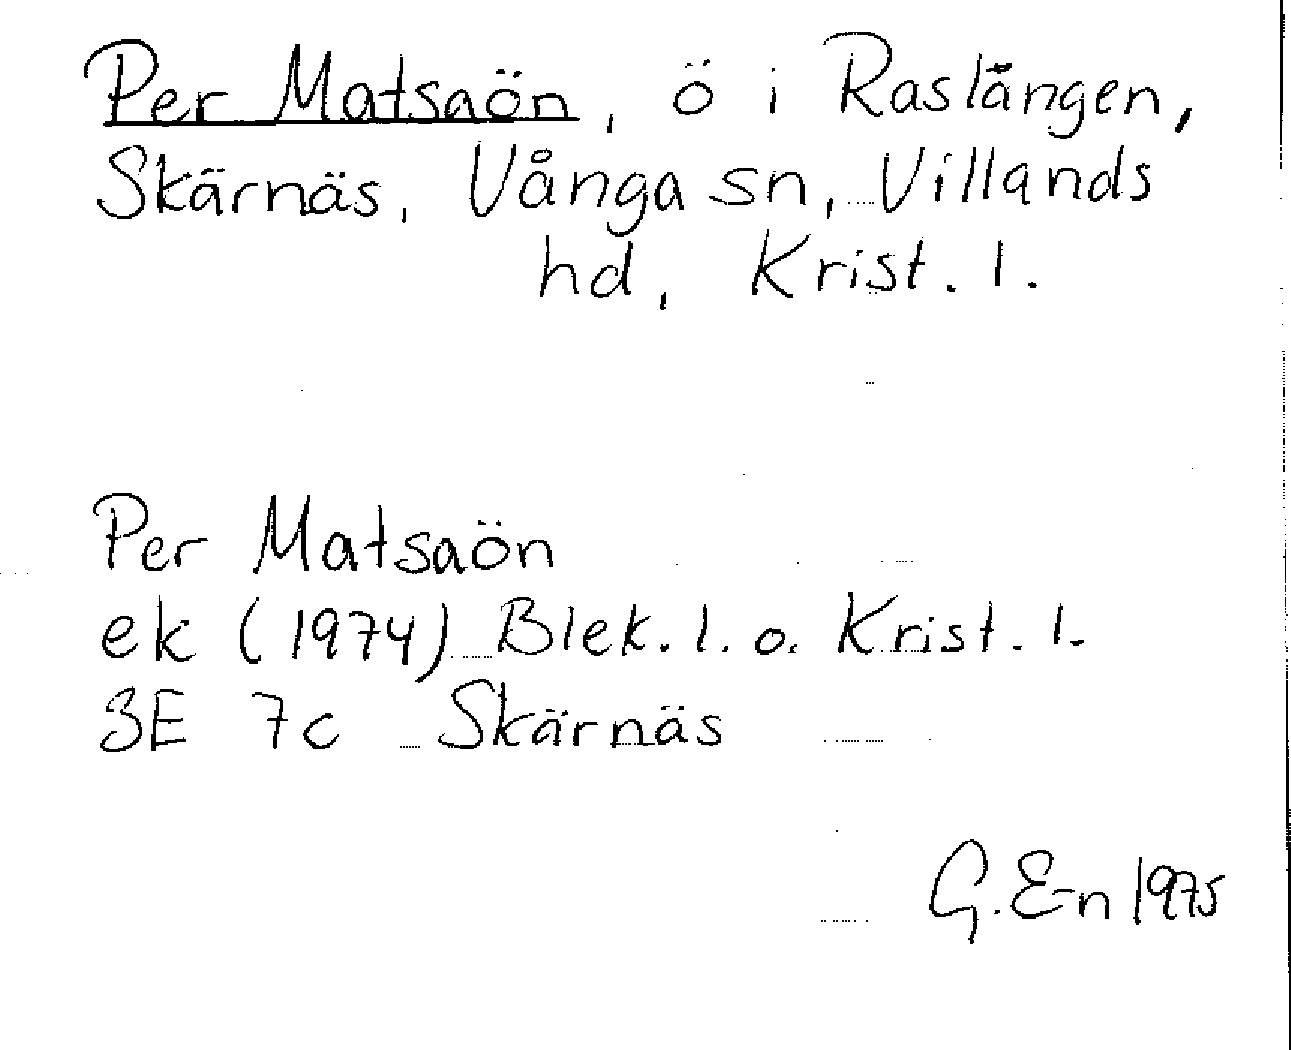 Per Matsaön, ö i Raslången,
Skärnäs, Vånga sn, Villands
hd, Krist. l.
Per Matsaön
ek (1974) Blek. l. o. Krist. l.
3E 7c Skärnäs
G. E-n 1975